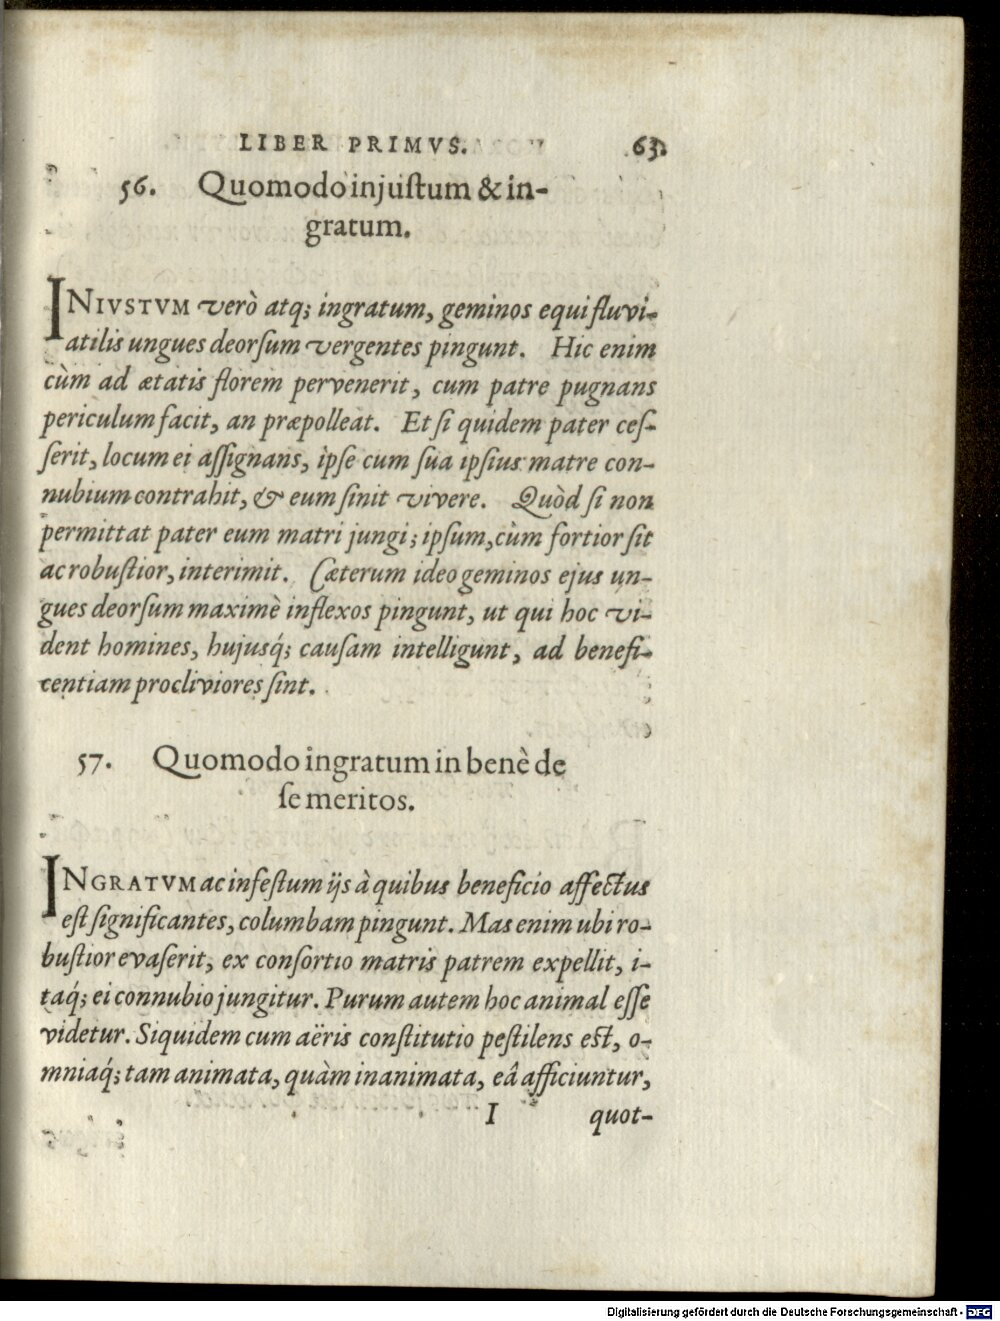 LIBER PRIMVS. 63.
56. Quomodo injustum & in-
gratum.
INIVSTVM verò atq; ingratum, geminos equi fluvi-
atilis ungues deorſum vergentes pingunt. Hic enim
cùm ad ætatis florem pervenerit, cum patre pugnans
periculum facit, an præpolleat. Et ſi quidem pater ceſ-
ſerit, locum ei aſſignans, ipſe cum ſua ipſius matre con-
nubium contrahit, & eum ſinit vivere. Quòd ſi non
permittat pater eum matri jungi; ipſum, cùm fortior ſit
ac robuſtior, interimit. Cæterum ideo geminos ejus un-
gues deorſum maximè inflexos pingunt, ut qui hoc vi-
dent homines, hujusq́; cauſam intelligunt, ad benefi-
centiam procliviores ſint.
57. Quomodo ingratum in benè de
ſe meritos.
INGRATVM ac infeſtum ijs à quibus beneficio affectus
eſt ſignificantes, columbam pingunt. Mas enim ubi ro-
buſtior evaſerit, ex conſortio matris patrem expellit, i-
taq́; ei connubio jungitur. Purum autem hoc animal eſſe
videtur. Siquidem cum aëris conſtitutio peſtilens eſt, o-
mniaq́; tam animata, quàm inanimata, eâ afficiuntur,
I quot-
Digitalisierung gefördert durch die Deutsche Forschungsgemeinschaft - DFG